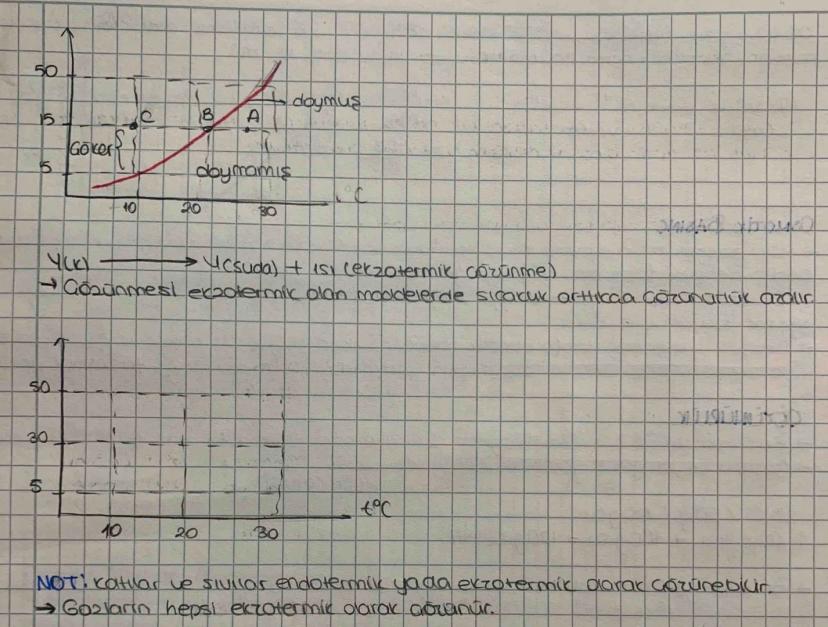 50
doymuş
15 C B A
Çöker
5 doymamış
10 20 30 °C
Y(k) → Y(suda) + ısı (ekzotermik çözünme)
→ Çözünmesi ekzotermik olan maddelerde sıcaklık arttıkça çözünürlük azalır
50
30
5
t°C
10 20 30
NOT: Katılar ve sıvılar endotermik yada ekzotermik olarak çözünebilir.
→ Gazların hepsi ekzotermik olarak çözünür.